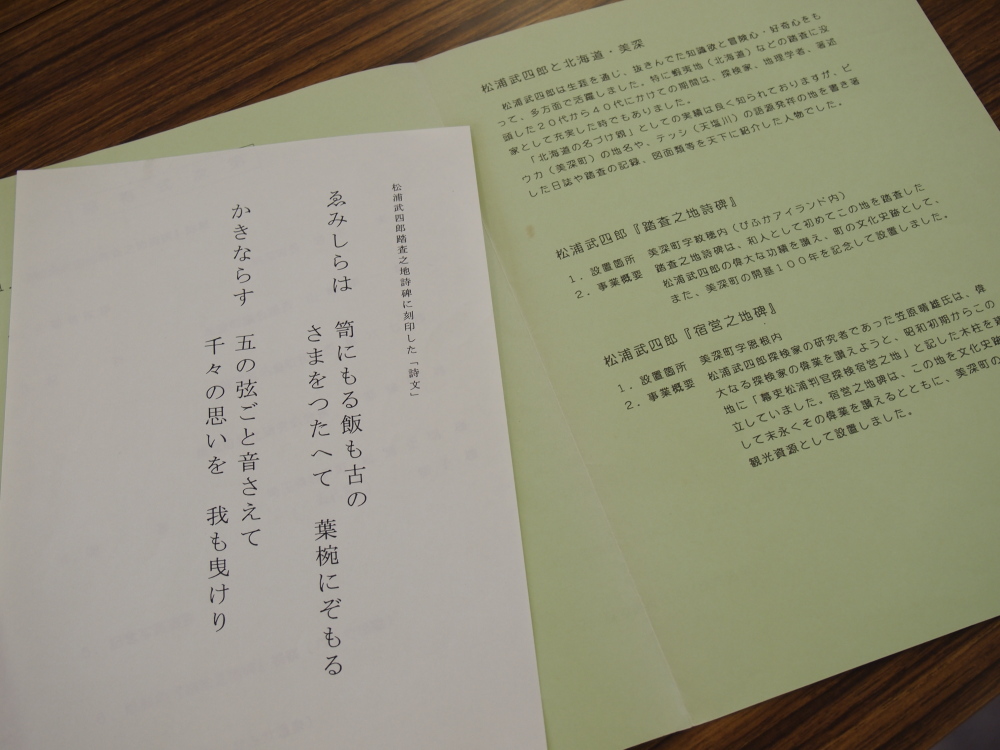 松浦武四郎踏査之地詩碑に刻印した「詩文」
ゑみしらは　笥にもる飯も古の
さまをつたへて　葉椀にぞもる
かきならす　五の弦ごと音さえて
千々の思いを　我も曳けり
松浦武四郎と北海道・美深
松浦武四郎は生涯を通じ、抜きんでた知識欲と冒険心・好奇心をも
って、多方面で活躍しました。特に蝦夷地（北海道）などの踏査に没
頭した２０代から４０代にかけての期間は、探検家、地理学者、著述
家として充実した時でもありました。
「北海道の名づけ親」としての実績は良く知られておりますが、ピ
ウカ（美深町）の地名や、テッシ（天塩川）の語源発祥の地を書き著
した日誌や踏査の記録、図面類等を天下に紹介した人物でした。
松浦武四郎『踏査之地詩碑』
１．設置箇所　美深町字紋穂内（びふかアイランド内）
２．事業概要　踏査之地詩碑は、和人として初めてこの地を踏査した
松浦武四郎の偉大な功績を讃え、町の文化史跡として、
また、美深町の開基１００年を記念して設置しました。
松浦武四郎『宿営之地碑』
１．設置箇所　美深町字恩根内
２．事業概要　松浦武四郎探検家の研究者であった笠原晴雄氏は、偉
大なる探検家の偉業を讃えようと、昭和初期からこの
地に「幕吏松浦判官探検宿営之地」と記した木柱を建
立していました。宿営之地碑は、この地を文化史跡
して末永くその偉業を讃えるとともに、美深町の
観光資源として設置しました。